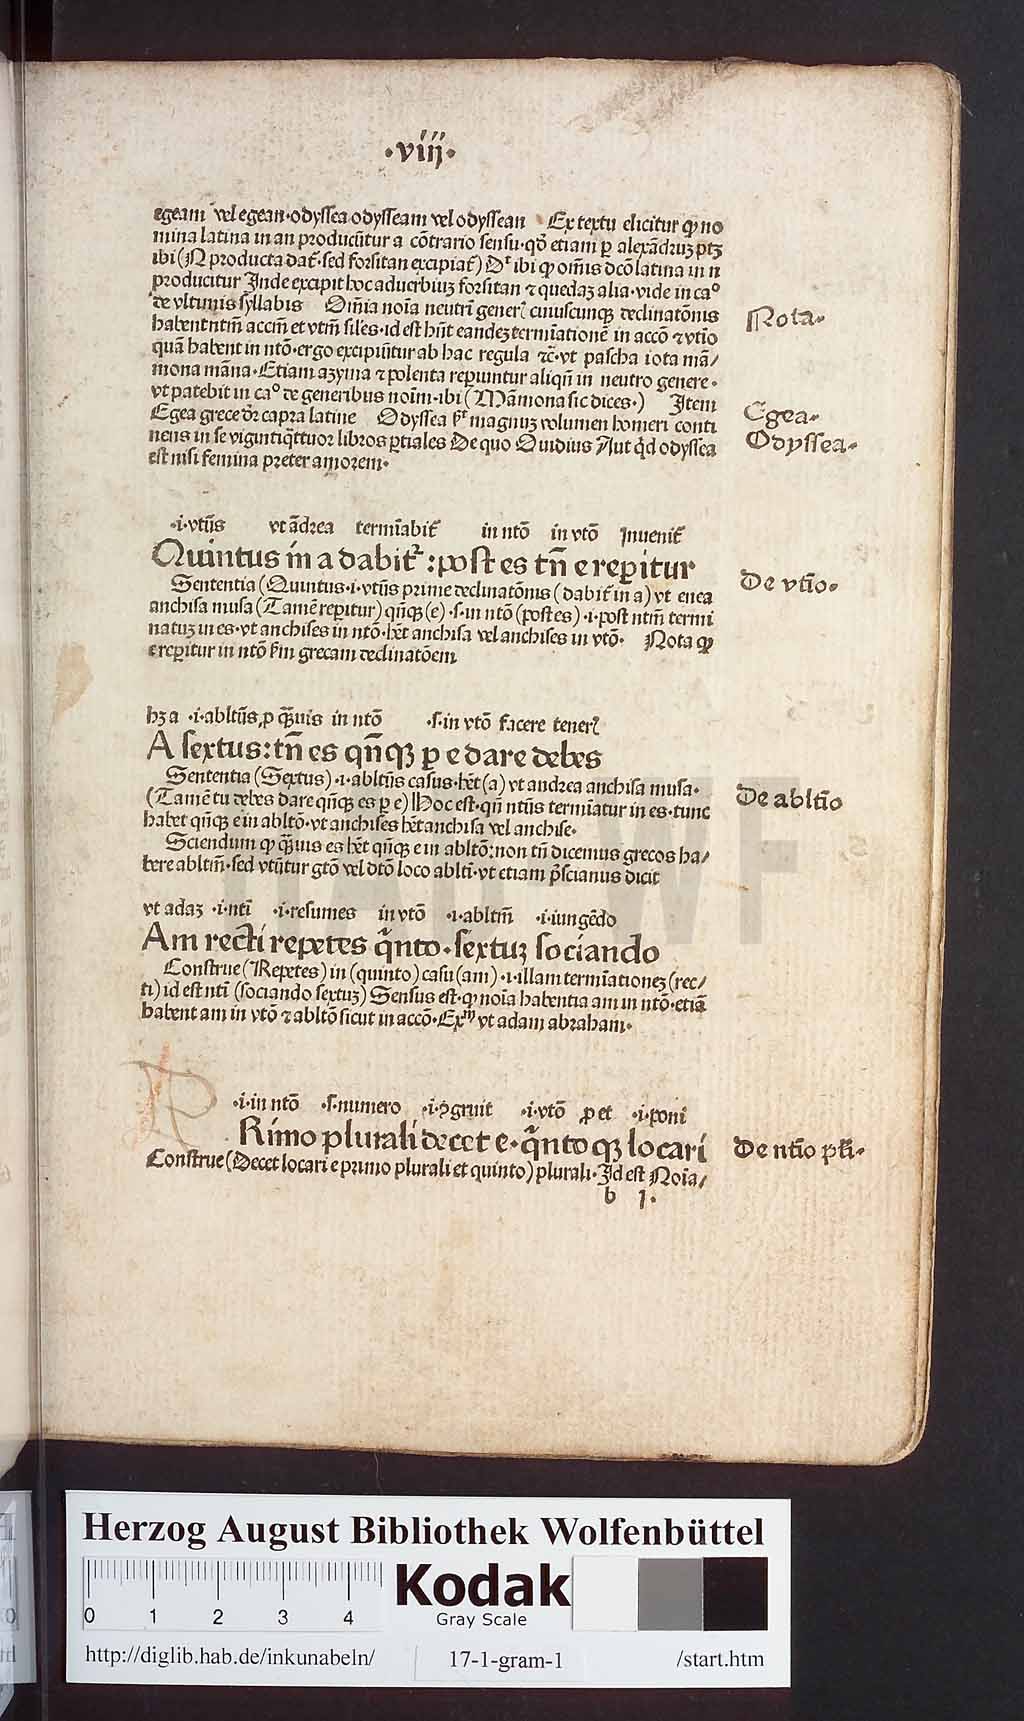 ·viij·
egeam vel egean·odyssea odysseam vel odyssean Ex textu elicitur ꝙ no
mina latina in an producūtur a cōtrario sensu·qđ etiam ꝑ alexādruꝫ ptꝫ
ibi (N producta dat᷑·sed forsitan excipiat᷑) Dr̄ ibi ꝙ om̄is dcō latina in n
producitur Inde excipit hoc aduerbiuꝫ forsitan ⁊ quedaꝫ alia·vide in caº
de vltimis syllabis Om̄ia noīa neutri gener̄ cuiuscunqꝫ declinatōnis
habent ntm̄ accm̄ et vtm̄ siles·id est hn̄t eandeꝫ termīationē in accō ⁊ vtīo
quā habent in ntō·ergo excipiūtur ab hac regula ⁊c̄·vt pascha iota mā/
mona māna·Etiam azyma ⁊ polenta reperiuntur aliqn̄ in neutro genere·
vt patebit in caº de generibus noīm·ibi (Māmona sic dices·) Item
Egea grece dr̄ capra latine Odyssea ē magnuꝫ volumen homeri conti
nens in se vigintiq̄ttuor libros ꝑtiales De quo Ouidius Aut qd odyssea
est nisi femina preter amorem·
Nota·
Egea·
Odyssea·
·i·vtijs vt ādrea termīabit᷑ in ntō in vtō Inuenit᷑
Quintus in a dabit᷑:post es tn̄ e reꝑitur
Sententia (Quintus·i·vtijs prime declinatōnis (dabit᷑ in a) vt enea
anchisa musa (Tamē reꝑitur) qn̄qꝫ (e)·s·in ntō (post es)·i·post ntm̄ termi
natuꝫ in es·vt anchises in ntō·hēt anchisa vel anchises in vtō· Nota ꝙ
e reꝑitur in ntō ẜm grecam declinatōem
De vtīo·
hꝫ a ·i·abltijs ꝓ q̄uis in ntō ·s·in vtō facere tener̄
A sextus:tn̄ es qn̄qꝫ ꝑ e dare debes
Sententia (Sextus)·i·abltijs casus·hēt (a) vt andrea anchisa musa·
(Tamē tu debes dare qn̄qꝫ es ꝑ e) Hoc est·qn̄ ntūs termīatur in es·tunc
habet qn̄qꝫ e in abltō·vt anchises hēt anchisa vel anchise·
Sciendum ꝙ q̄uis es hēt qn̄qꝫ e in abltō:non tn̄ dicemus grecos ha/
bere abltm̄·sed vtūtur gtō vel dtō loco ablti·vt etiam p̄scianus dicit
De abltīo
vt adaꝫ ·i·nti ·i·resumes in vtō ·i·abltm̄ ·i·iungēdo
Am recti repetes q̄nto·sextuꝫ sociando
Construe (Repetes) in (quinto) casu (am)·i·illam termīationeꝫ (rec/
ti) id est nti (sociando sextuꝫ) Sensus est·ꝙ noīa habentia am in ntō·etiā
habent am in vtō ⁊ abltō sicut in accō·Exm̄ vt adam abraham·
·i·in ntō ·s·numero ·i·ꝯgruit ·i·vtō ꝓ et ·i·poni
P Rimo plurali decet e·q̄nto qꝫ locari
Construe (Decet locari e primo plurali et quinto) plurali·Id est Noīa/
De ntīo pli·
b 1·
Herzog August Bibliothek Wolfenbüttel
0 1 2 3 4
Kodak
Gray Scale
http://diglib.hab.de/inkunabeln/ 17-1-gram-1 /start.htm